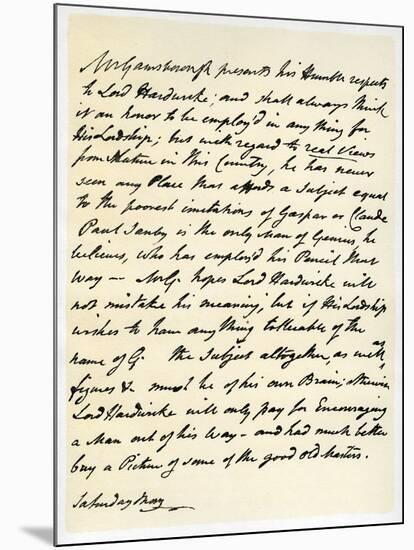 Mr Gainsborough presents his Humble respects
to Lord Hardwicke; and shall always think
it an honor to be employ'd in any thing for
His Lordship; but with regard to real Views
from Nature in this Country, he has never
seen any Place that affords a Subject equal
to the poorest imitations of Gaspar or Claude
Paul Sanby is the only Man of Genius, he
believes, who has employ'd his Pencil that
way — Mr G. hopes Lord Hardwicke will
not mistake his meaning, but if His Lordship
wishes to have any thing tollerable of the
name of G. the Subject altogether, as well as
figures &c must be of his own Brain; otherwise
Lord Hardwicke will only pay for Encouraging
a Man out of his way – and had much better
buy a Picture of some of the good old Masters.
Saturday Morg